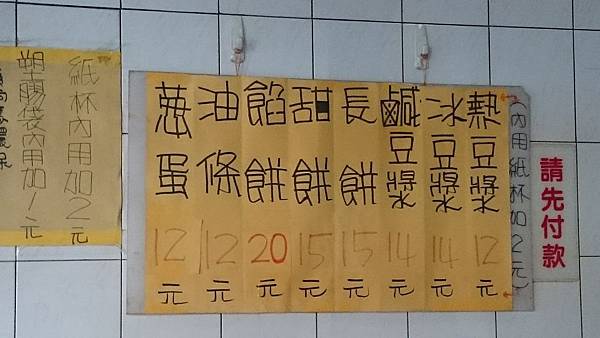 請先付款
(內用紙杯加2元)
熱豆漿12元
冰豆漿14元
鹹豆漿14元
長餅15元
甜餅15元
餡餅20元
油條12元
蔥蛋12元
紙杯內用加2元
塑膠袋內用加1元